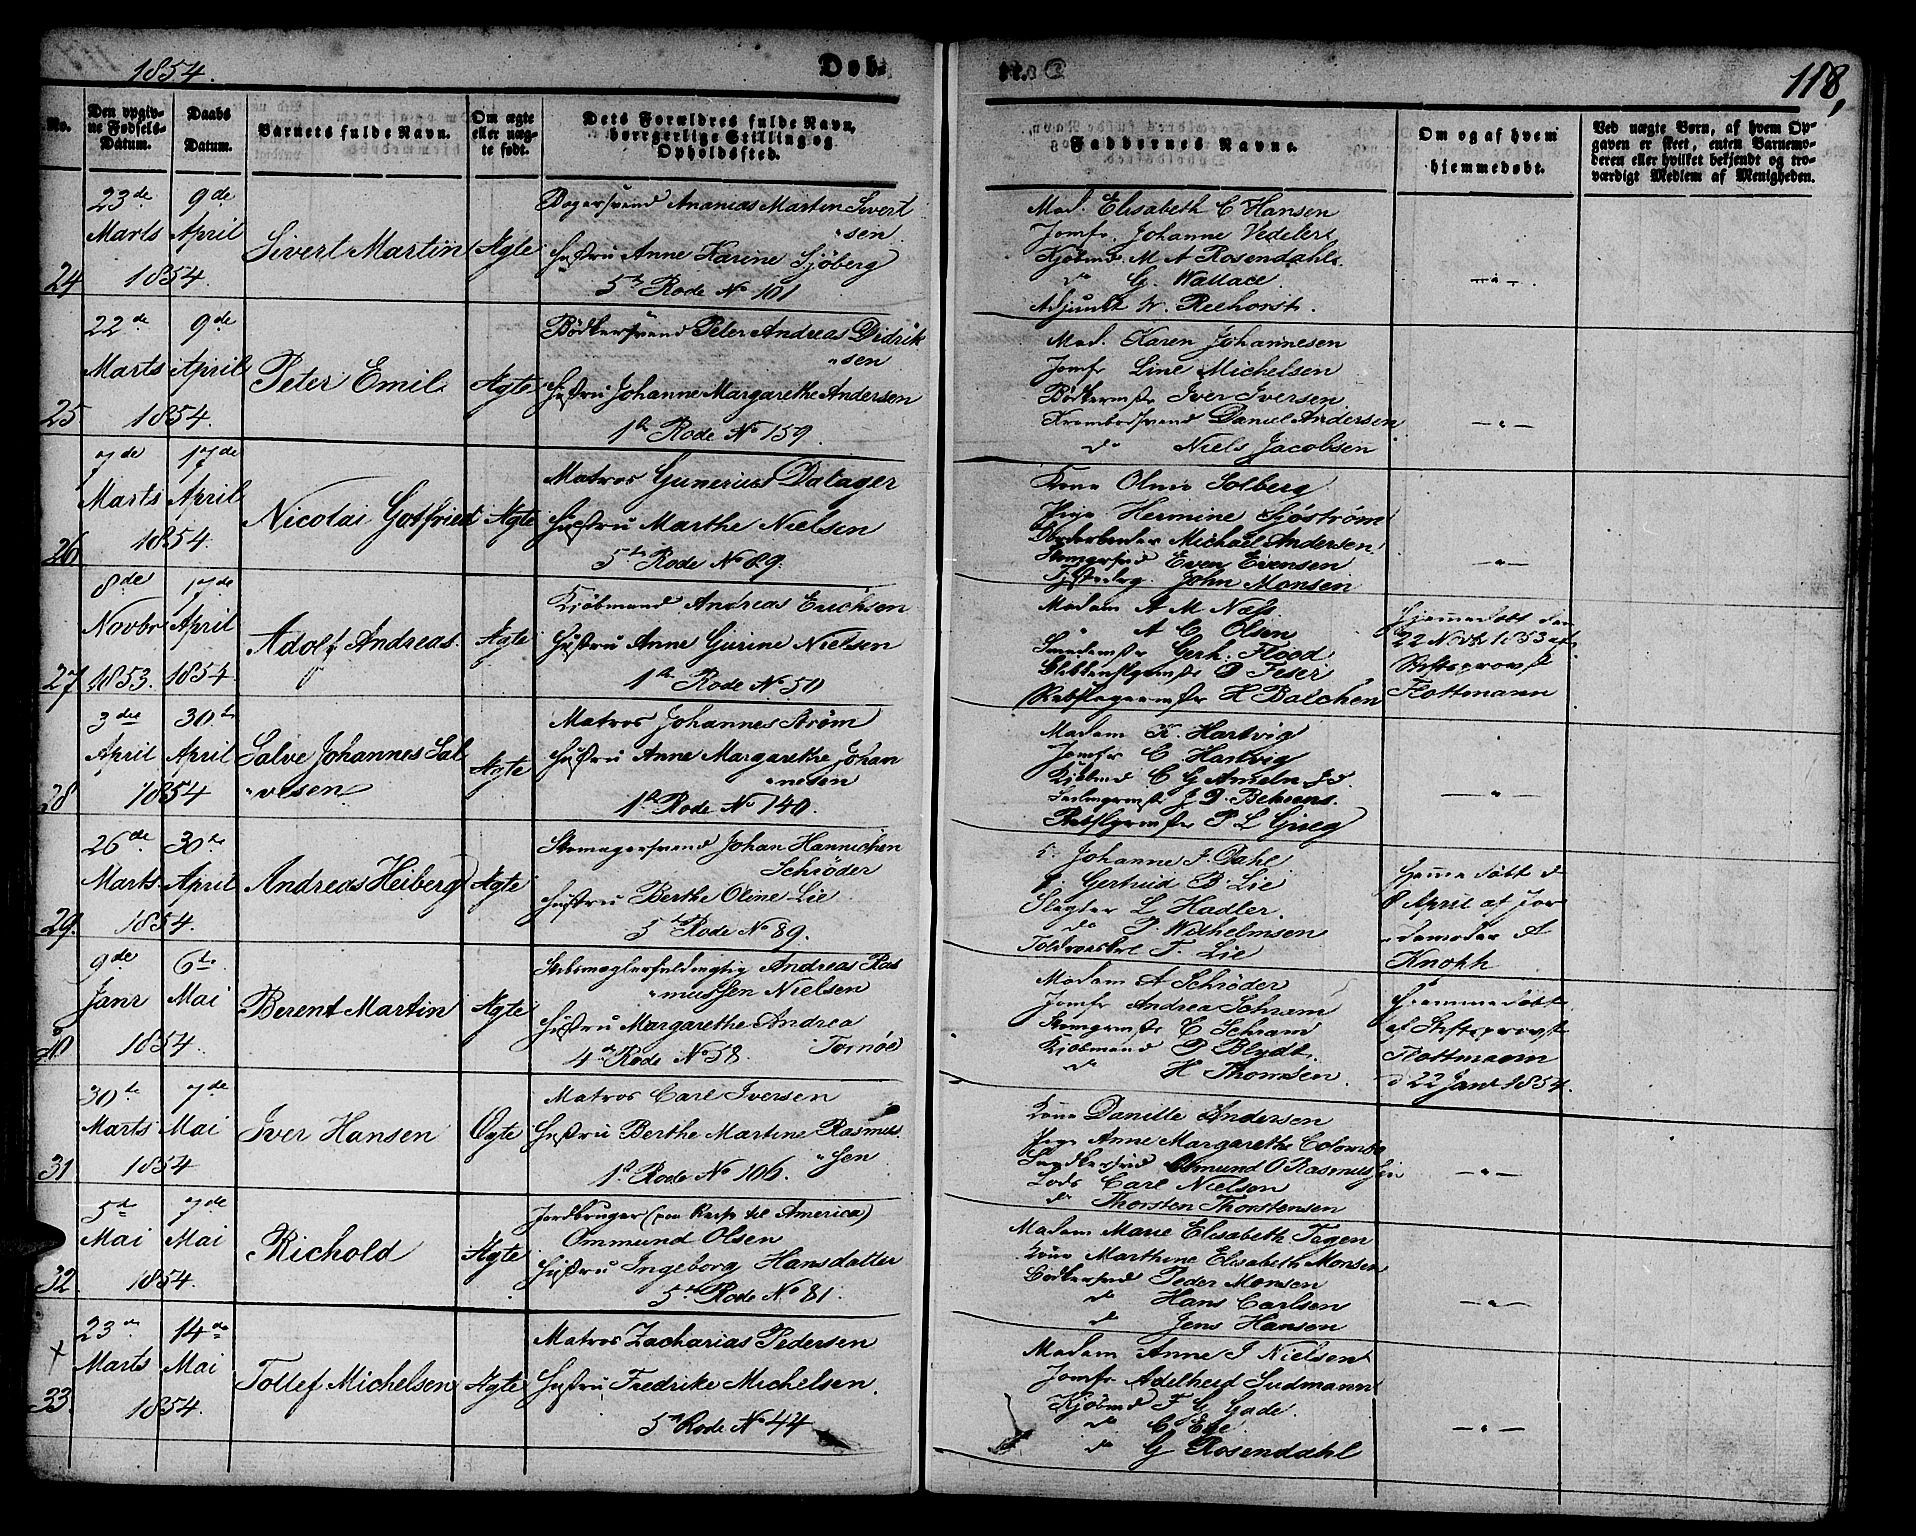 1854.
Dob
118,
No.
Den opgiv-
ne Fødsels-
Datum.
Daabs
Datum.
Barnets fulde Navn.
Om ægte
eller uæg-
te født.
Dets Forældres fulde Navn,
borgerlige Stilling og
Opholdssted.
Faddernes Navne.
Om og af hvem
hjemmedøbt.
Ved uægte Børn, af hvem Op-
gaven er skeet, enten Barnemo-
deren eller hvilket bekjendt og tro-
værdigt Medlem af Menigheden.
24
23de
Marts
1854.
9de
April
Sivert Martin
Ægte
Bagersvend Ananias Marten Sivert
"sen.
Hustru Anne Karine Sjöberg
5te Rode No 101
Mad. Elisabeth C Hansen
Jomfr. Johanne Vedeler
Kjöbmd M A Rosendahl
do G. Wallace
Adjunkt W. Reehorst.
—"—
25
22de
Marts
1854.
9de
April
Peter Emil
Ægte
Bödkersvend Peter Andreas Didrik
"sen
Hustru Johanne Margarethe Andersen
1te Rode No 159.
Mad. Karen Johannesen
Jomfr Line Michelsen
Bödkermstr Iver Iversen
Daniel Andersen
do Niels Jacobsen
—"—
26
7de
Marts
1854.
17de
April
Nicolai Gotfried
Ægte
Matros Gunerius Dalager
Hustru Marthe Nielsen
5te Rode No 89.
Kone Olave Solberg
Pige Hermine Sjöström
Michael Andersen
Even Evensen
John Monsen
—"—
27
8de
Novbr
1853.
17de
April
1854.
Adolf Andreas.
Ægte
Kjöbmand Andreas Erichsen
Hustru Anne Gurine Nielsen
1te Rode No 50
Madam A M Næss
A C Olsen
Smedemstr Gerh. Flood
D Feser
Rebslagermstr H Balchen
Hjemmedöbt den
22 Novbr 1853 af
Stiftsprovst
Flottmann
28
3die
April
1854
30te
April
Salve Johannes Sal
"vesen
Ægte
Matros Johannes Strøm
Hustru Anne Margarethe Johan
"nesen
1te Rode No 140.
Madam K. Hartvig
Jomfr C Hartvig
Kjöbmd C G Ameln
J D. Behrens.
Rebslgrmstr P L Gjieg
—"—
29.
26de
Marts
1854.
30te
April
Andreas Heiberg
Ægte
Skomagersvend Johan Hannichen
Schröder
Hustru Berthe Oline Lie
5te Rode No 89.
Johanne J. Dahl
Gertrud B. Lie
Slagter L Hadler.
do P Wilhelmsen
T. Lie
Hjemmedöbt d
8 April af Jor
"demoder A
Knohh
30
9de
Janr
1854.
6te
Mai
Berent Martin
Ægte
Skibsmæglerfuldmægtig Andreas Ras
"mussen Nielsen
Hustru Margarethe Andrea
Tornöe
4de Rode No 58.
Madam A Schröder
Jomfr Andrea Schram
C Schram
Kjöbmand P Blydt.
do H Thomsen.
Hjemmedöbt
af Stiftsprovst
Flottmann
d 22 Janr 1854.
31
30te
Marts
1854
7de
Mai
Iver Hansen
Ægte
Matros Carl Iversen
Hustru Berthe Martine Rasmus
"sen
1te Rode No 106.
Kone Danille Andersen
Pige Anne Margarethe Colombo
Osmund O Rasmussen
Lods Carl Nielsen
do Thorsten Thorstensen
—"—
32
5te
Mai
1854.
7de
Mai
Richold
Ægte
Jordbruger (paa Reise til America)
Ommund Olsen
Hustru Ingeborg Hansdatter
5te Rode No 81.
Madam Marie Elisabeth Fagen
Kone Marthine Elisabeth Monsen
Bödkersvd Peder Monsen
do Hans Carlsen
do Jens Hansen
—"—
+
33.
23de
Marts
1854.
14de
Mai
Tollef Michelsen
Ægte
Matros Zacharias Pedersen
Hustru Fredrike Michelsen.
5te Rode No 44
Madam Anne J Nielsen
Jomfr Adelheid Sudmann
Kjöbmd F G Gade.
do C Ege
do G Rosendahl
—"—